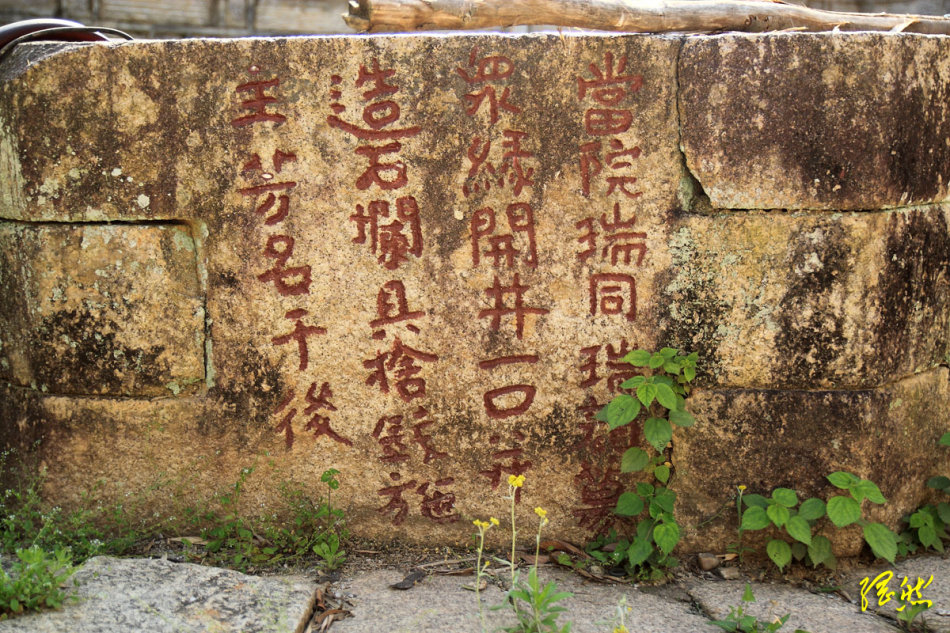 當院瑞同瑞募
眾緣開井一口并
造石欄具捨錢施
主芳名于後